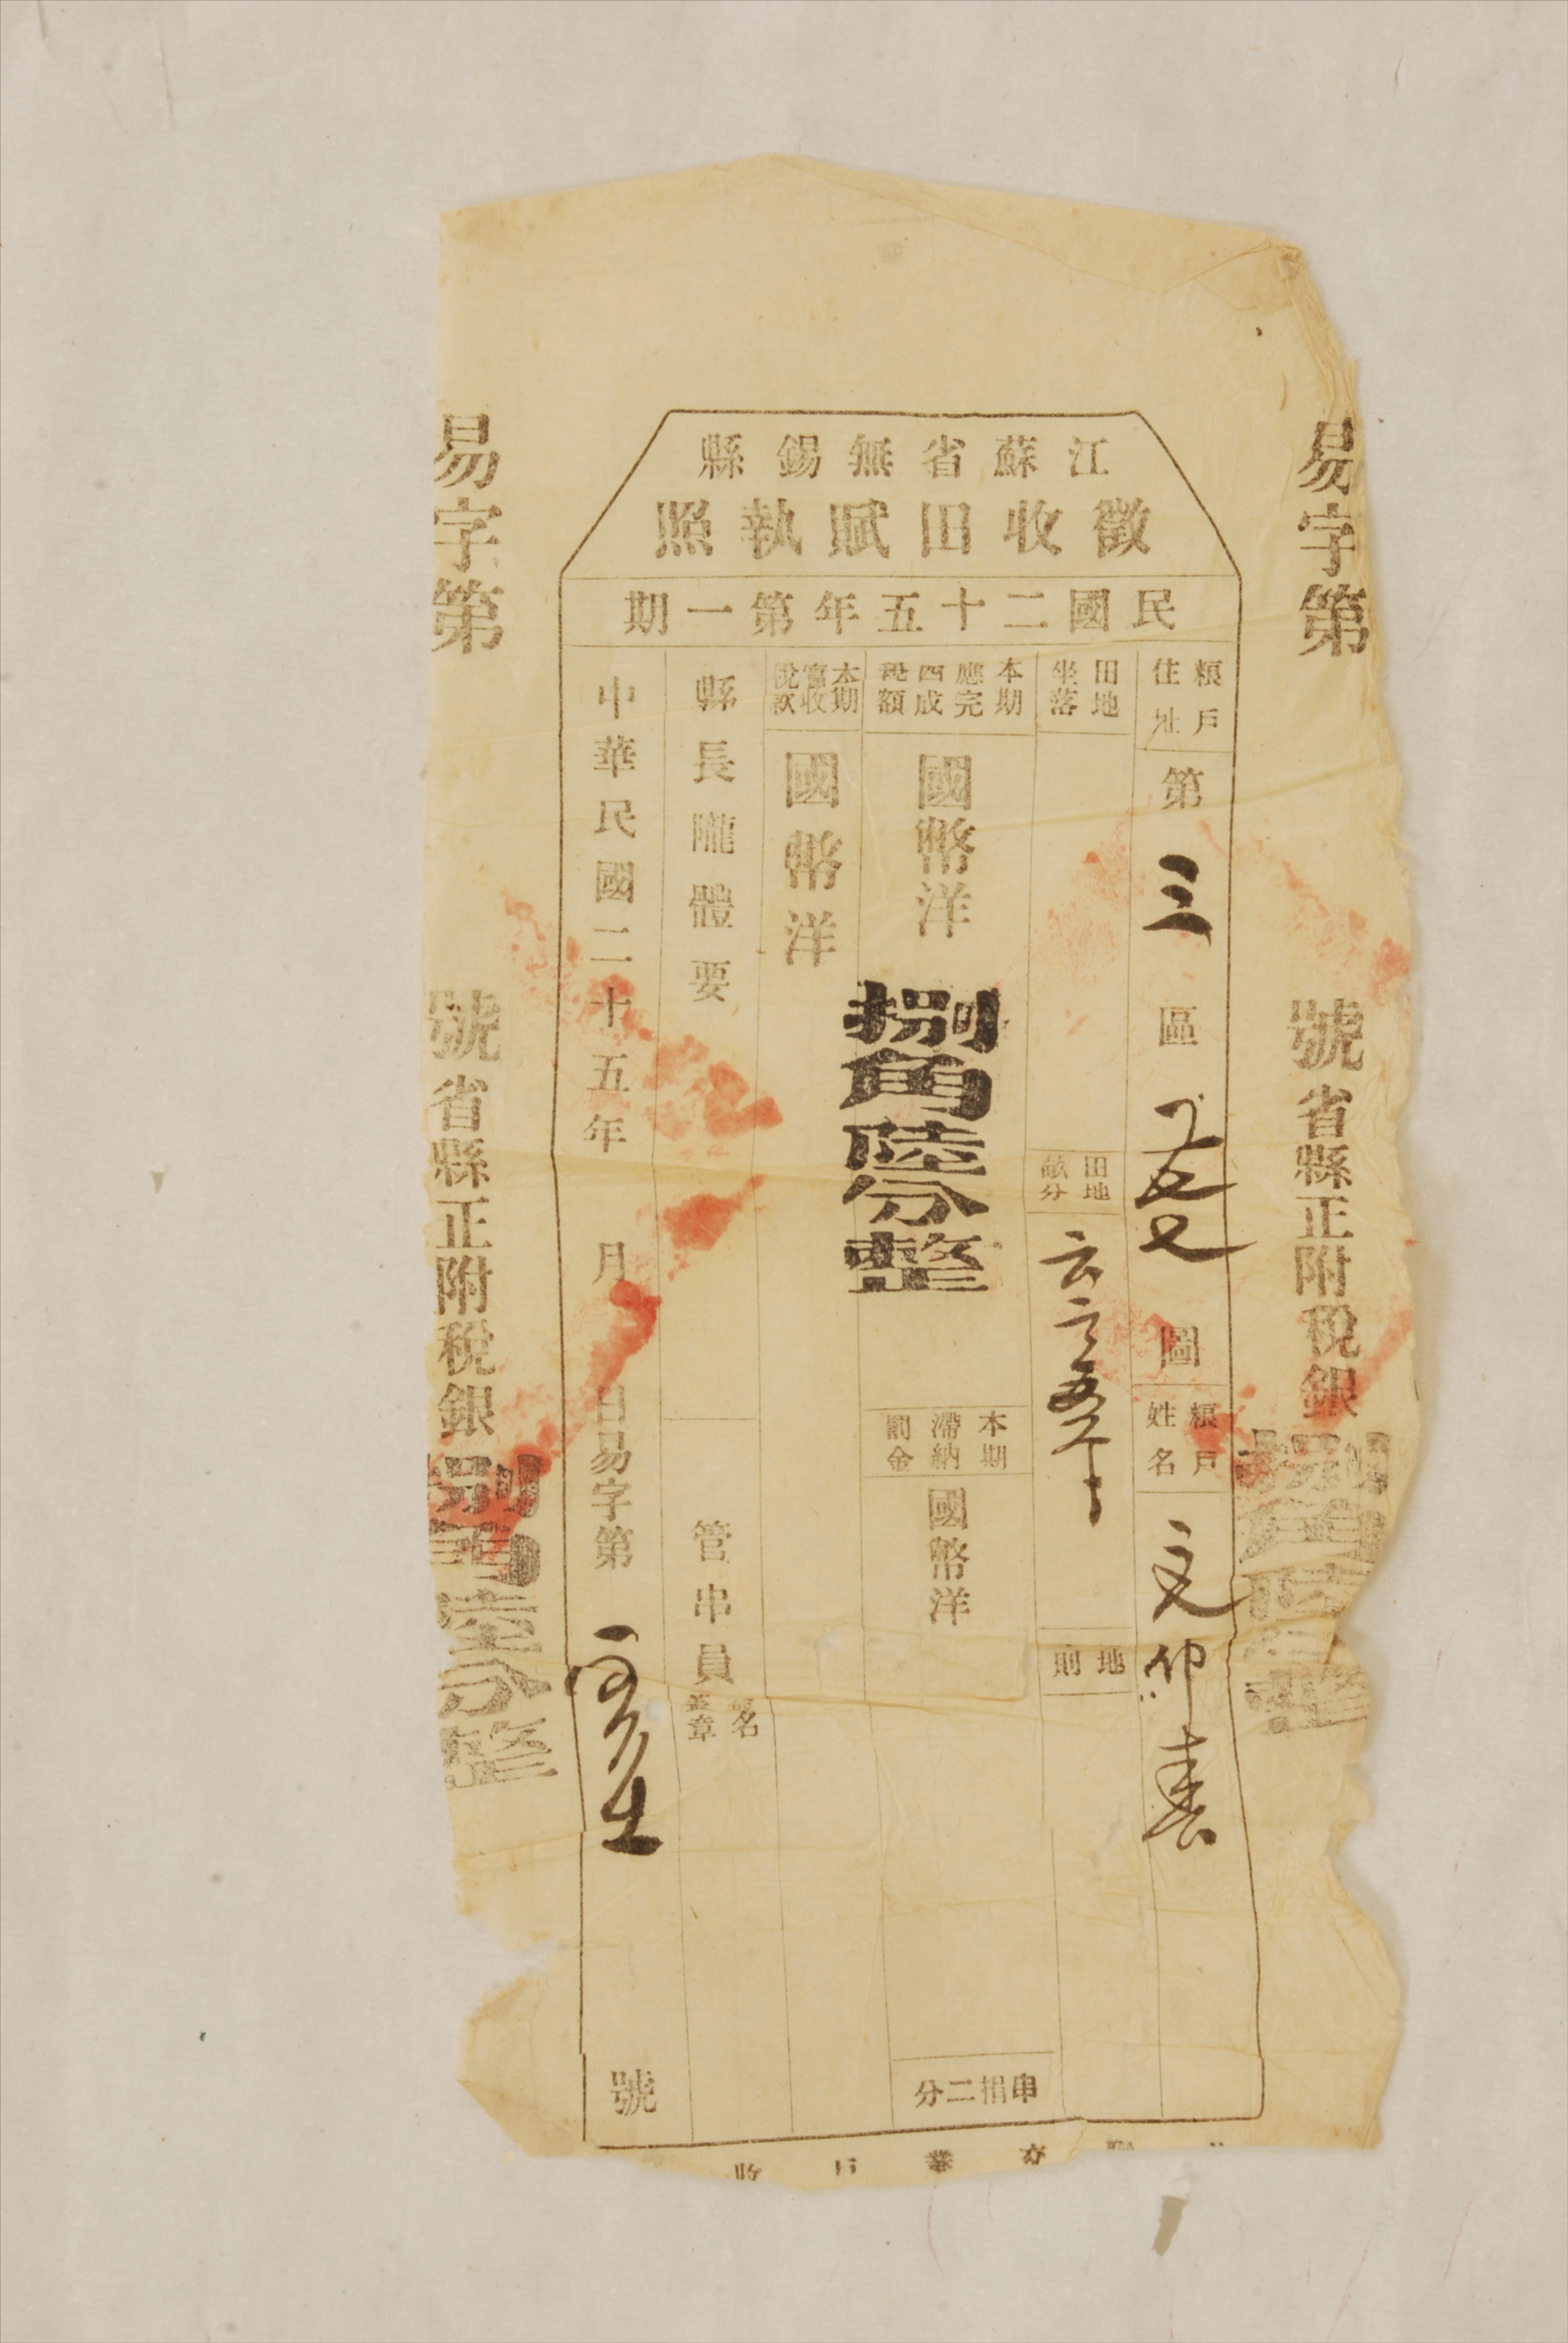 易字第
號
省縣正附稅銀
捌角陸分整
江蘇省無錫縣
徵收田賦執照
民國二十五年第一期
糧戶住址
第三區
圖
糧戶姓名
文仰春
田地坐落
田地畝分
地則
本期應完四成稅額
國幣洋
捌角陸分整
本期滯納罰金
國幣洋
串捐二分
本期實收稅款
國幣洋
縣長隴體要
管串員
署名蓋章
中華民國二十五年
月
日易字第
號
易字第
號
省縣正附稅銀
捌角陸分整